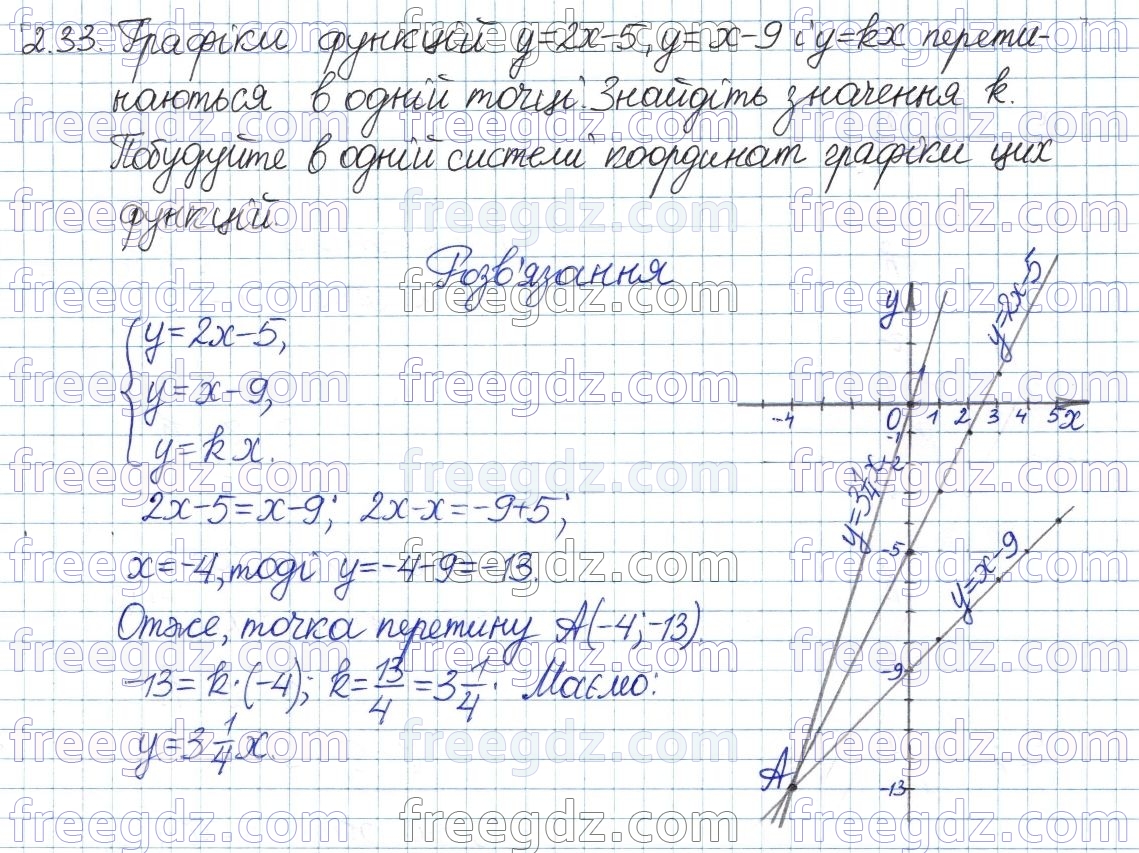 2.33. Графіки функцій y=2x-5, y=x-9 і y=kx перети-
наються в одній точці. Знайдіть значення k.
Побудуйте в одній системі координат графіки цих
функцій.
Розв'язання
y=2x-5,
y=x-9,
y=kx.
2x-5=x-9; 2x-x=-9+5;
x=-4, тоді y=-4-9=-13.
Отже, точка перетину A(-4;-13).
-13=k·(-4); k=13/4=3 1/4. Маємо:
y=3 1/4 x.
y
y=2x-5
1
-4 0 1 2 3 4 5 x
-1
-2
y=3 1/4 x
-5
y=x-9
-9
A
-13
freegdz.com